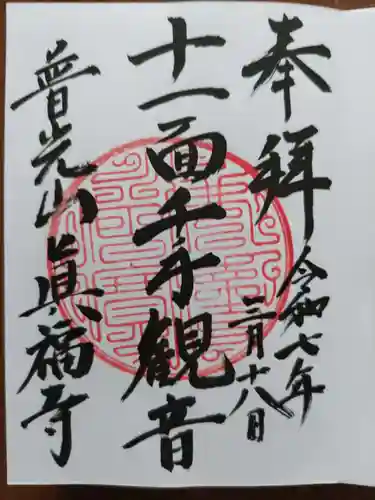 奉拝
令和七年
二月十八日
十一面千手観音
普光山眞福寺